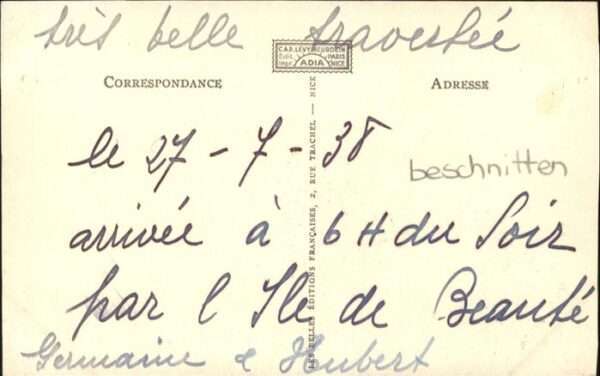 très belle traversée
C.A.P. LEVY & NEURDEIN
Edit. PARIS
Impr. ADIA NICE
CORRESPONDANCE
ADRESSE
le 27-7-38
beschnitten
arrivée à 6 H du Soir
par l Ile de Beauté
Germaine & Hubert
LES BELLES ÉDITIONS FRANÇAISES, 2, RUE TRACHEL — NICE